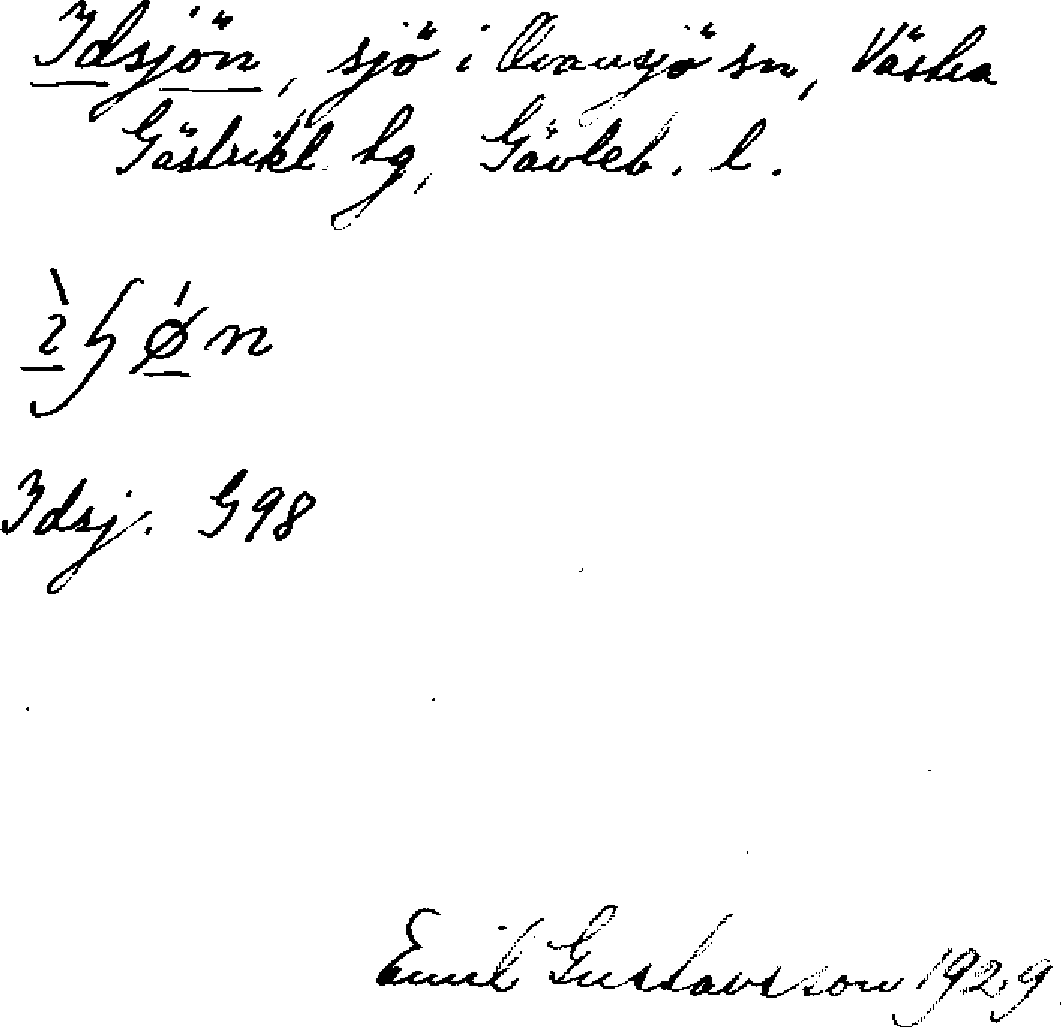 Idsjön, sjö i Ovansjö sn, Västra
Gästrikl. hg, Gävleb. l.
Idsj. G98
Emil Gustavsson 1929.